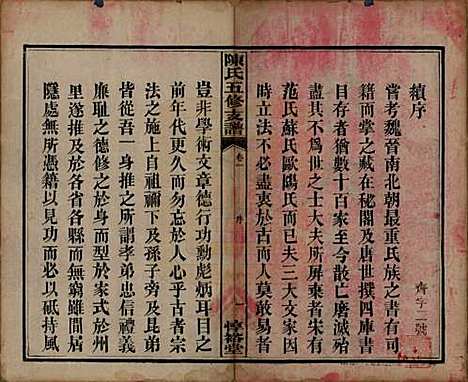 續序
嘗考魏晉南北朝最重氏族之書有司
籍而掌之藏在秘閣及唐世撰四庫書
目存者猶數十百家至今散亡磨滅殆
為世之士大夫所屏棄者宋有
范氏蘇氏歐陽氏而已夫三大文家因
時立法不必盡衷於古而人莫敢易者
齊字二號
陳氏五修支譜
卷一
序
一
惇裕堂
豈非學術文章德行功勳彪炳耳目之
前年代更久而勿忘於人心乎古者宗
法之施上自祖禰下及孫子旁及昆弟
皆從吾一身推之所謂孝弟忠信禮義
廉恥之德修之於身而型於家式於州
里遂推之於各省各縣窮雖閒居
隱處無所憑藉以見功必以砥持風